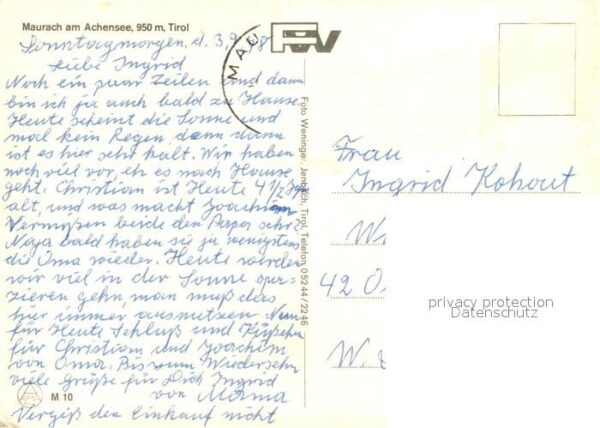 Maurach am Achensee, 950 m, Tirol
Sonntagmorgen, d. 3.9.
Liebe Ingrid
Noch ein paar Zeilen und dann
bin ich ja auch bald zu Hause.
Heute scheint die Sonne und
mal kein Regen, denn dann
ist es hier sehr kalt. Wir haben
noch viel vor, eh es nach Hause
geht. Christian ist Heute 4 1/2
alt, und was macht Joachim
Vermißen beide den Papa sehr?
Naja bald haben sie ja wenigstens
die Oma wieder. Heute werden
wir viel in der Sonne spa-
zieren gehn, man muß das
hier immer ausnutzen. Nun
für Heute Schluß und Küßchen
für Christian und Joachim
von Oma. Bis zum Wiedersehn
viele Grüße für Dich Ingrid
von Mama
Vergiß den Einkauf nicht
M 10
MAU
Foto Weninger, Jenbach, Tirol, Telefon 05244/2246
Frau
Ingrid Kohout
W
42 O
W.
privacy protection
Datenschutz